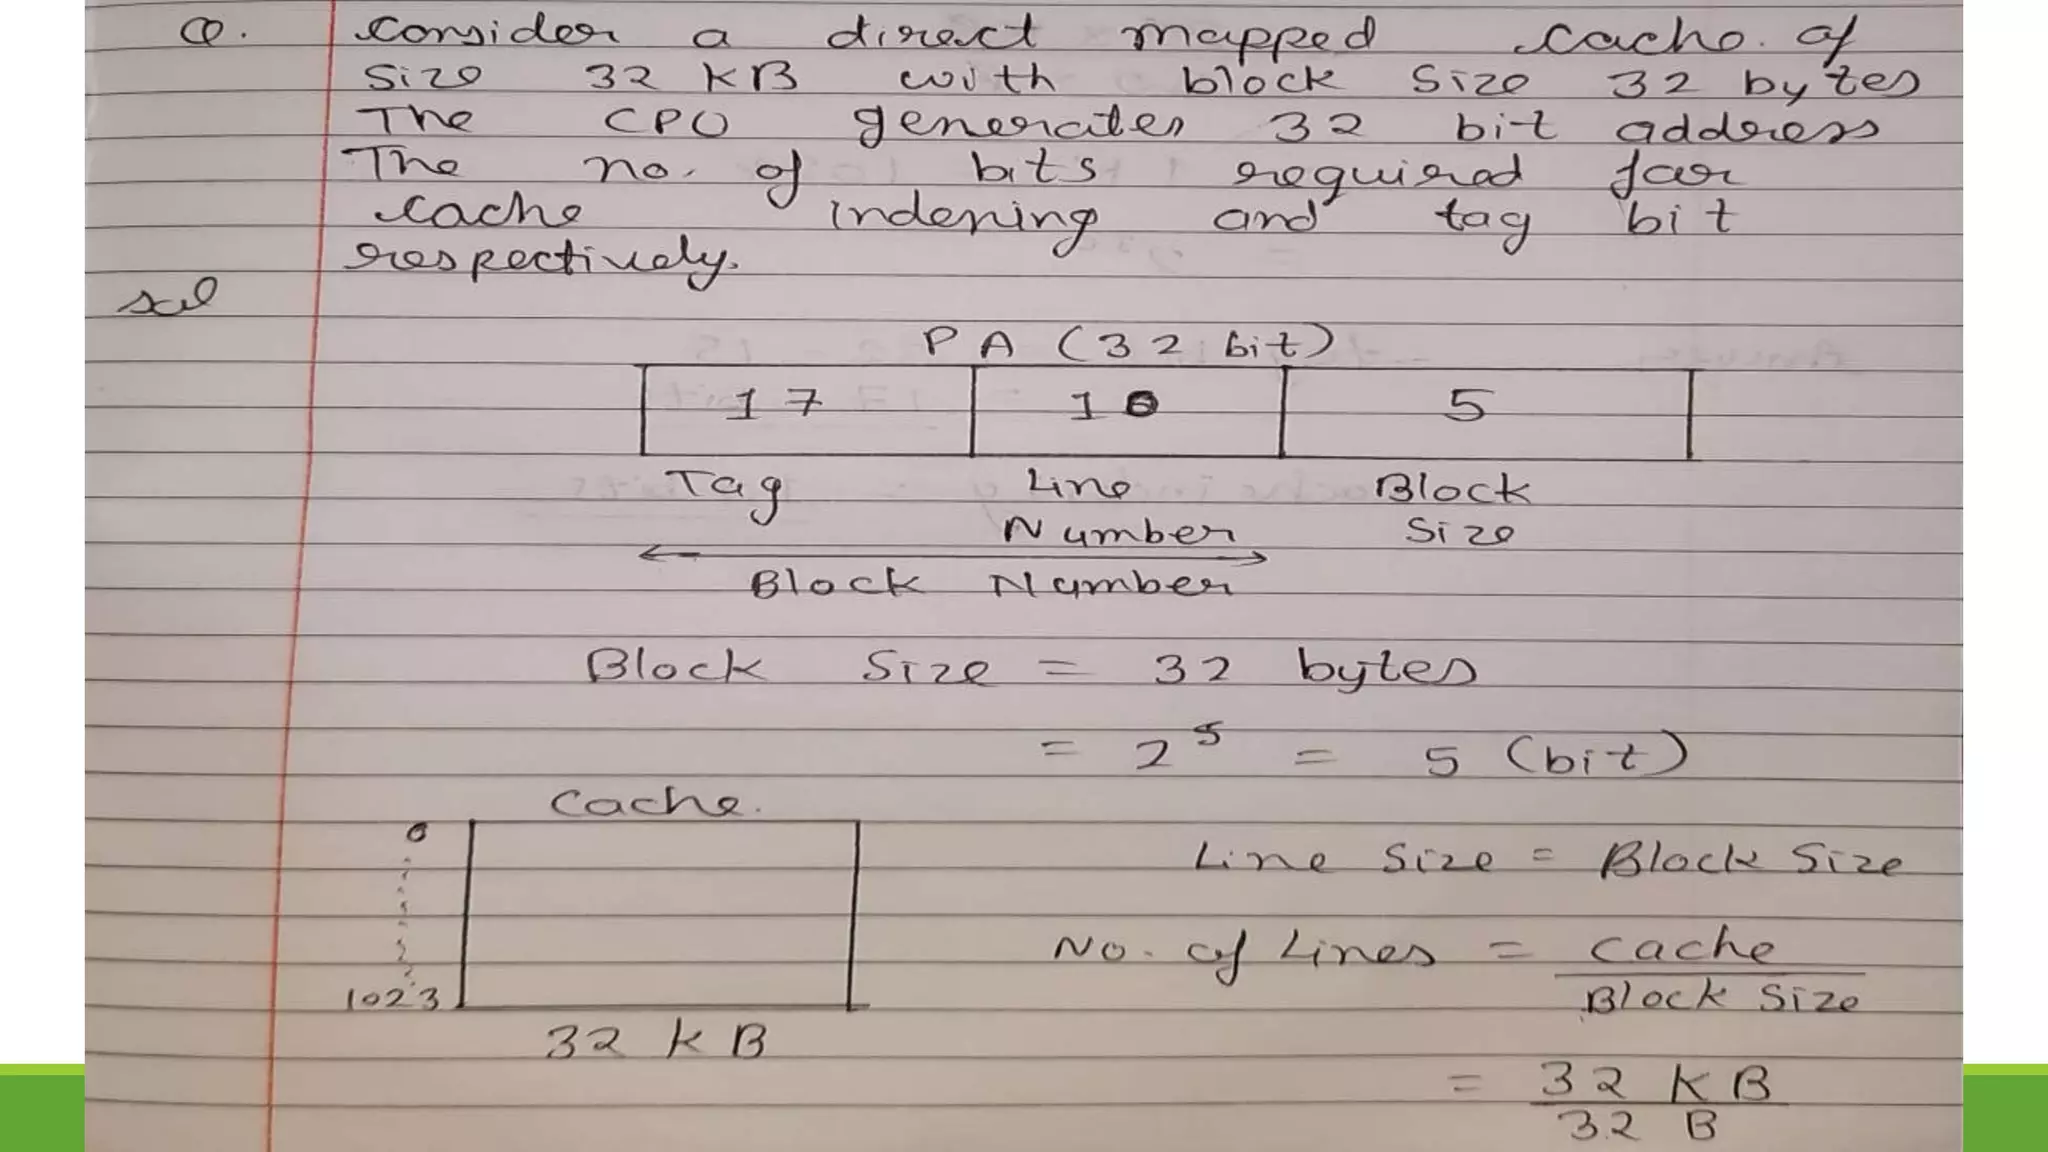 Q. Consider a direct mapped cache of
size 32 KB with block size 32 bytes
The CPU generates 32 bit address
The no. of bits required for
cache indexing and tag bit
respectively.
sol
PA (32 bit)
17 10 5
Tag Line Block
Number Size
Block Number
Block Size = 32 bytes
= 2^5 = 5 (bit)
Cache.
0
Line Size = Block Size
No. of Lines = Cache
1023 Block Size
32 KB
= 32 KB
32 B